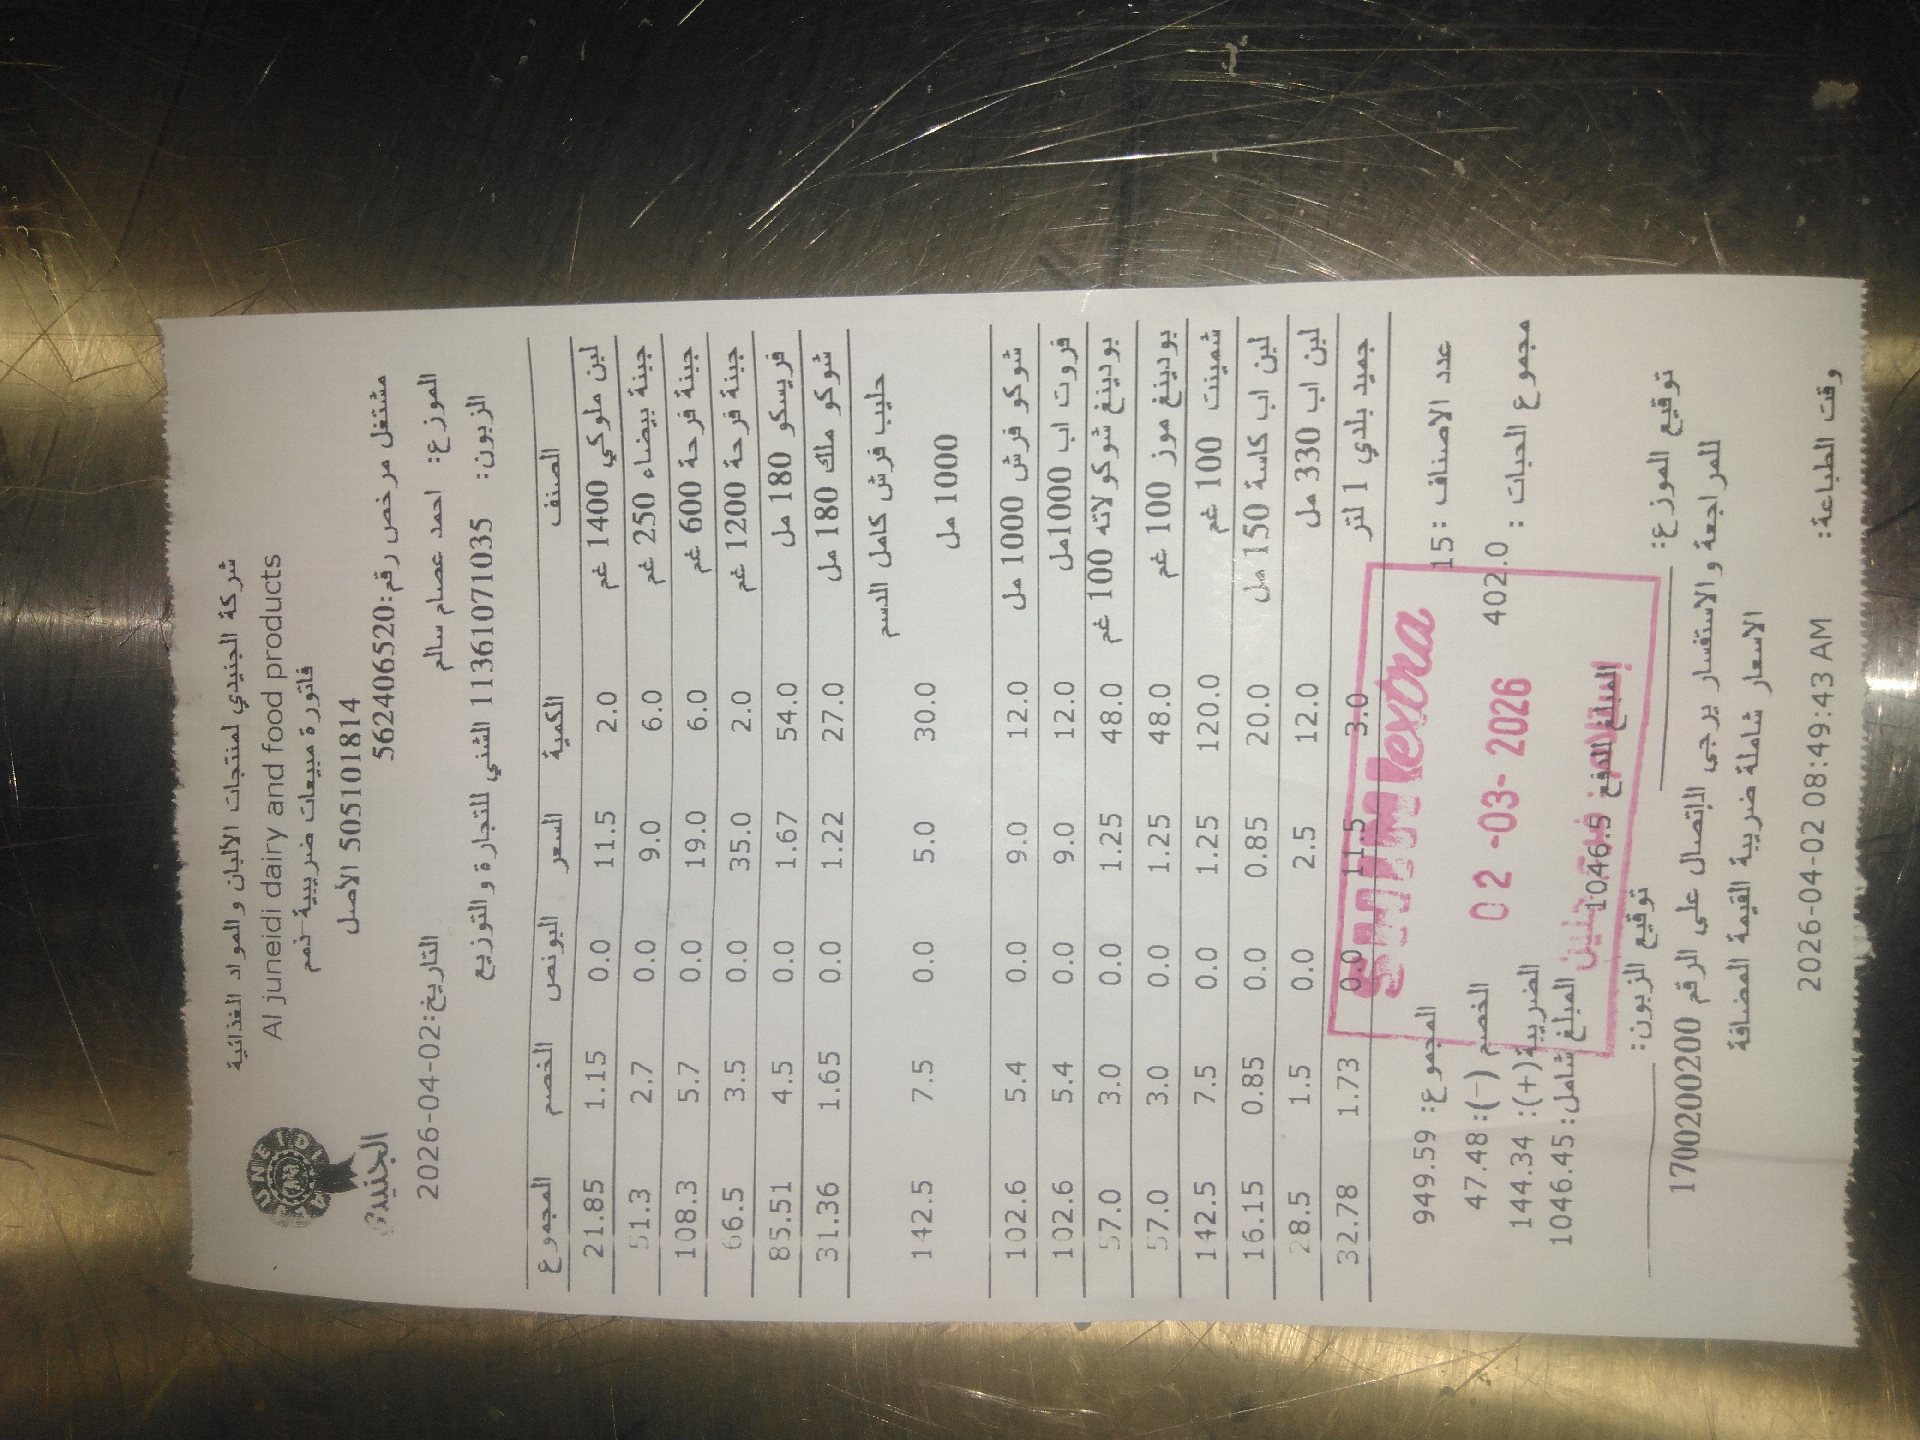 شركة الجنيدي لمنتجات الألبان والمواد الغذائية
Al juneidi dairy and food products
فاتورة مبيعات ضريبية-ذمم
505101814 الأصل
مشتغل مرخص رقم:562406520
JUNEIDI
الجنيدي
الموزع: احمد عصام سالم التاريخ:2026-04-02
الزبون: 1136107103​5 الشني للتجارة والتوزيع
الصنف الكمية السعر البونص الخصم المجموع
لبن ملوكي 1400 غم 2.0 11.5 0.0 1.15 21.85
جبنة بيضاء 250 غم 6.0 9.0 0.0 2.7 51.3
جبنة فرحة 600 غم 6.0 19.0 0.0 5.7 108.3
جبنة فرحة 1200 غم 2.0 35.0 0.0 3.5 66.5
فريسكو 180 مل 54.0 1.67 0.0 4.5 85.51
شوكو ماك 180 مل 27.0 1.22 0.0 1.65 31.36
حليب فرش كامل الدسم
1000 مل 30.0 5.0 0.0 7.5 142.5
شوكو فرش 1000 مل 12.0 9.0 0.0 5.4 102.6
فروت اب 1000مل 12.0 9.0 0.0 5.4 102.6
بودينغ شوكولاته 100 غم 48.0 1.25 0.0 3.0 57.0
بودينغ موز 100 غم 48.0 1.25 0.0 3.0 57.0
شمينت 100 غم 120.0 1.25 0.0 7.5 142.5
لبن اب كاسة 150 مل 20.0 0.85 0.0 0.85 16.15
لبن اب 330 مل 12.0 2.5 0.0 1.5 28.5
جميد بلدي 1 لتر 3.0 11.5 0.0 1.73 32.78
extra
02 -03- 2026
عدد الاصناف :15 المجموع: 949.59
مجموع الحبات : 402.0 الخصم (-): 47.48
الضريبة(+): 144.34
المبلغ شامل: 1046.45
المبلغ المدفوع 1046.5
توقيع الموزع: توقيع الزبون:
للمراجعة والاستفسار يرجى الإتصال على الرقم 1700200200
الاسعار شاملة ضريبة القيمة المضافة
وقت الطباعة: 2026-04-02 08:49:43 AM